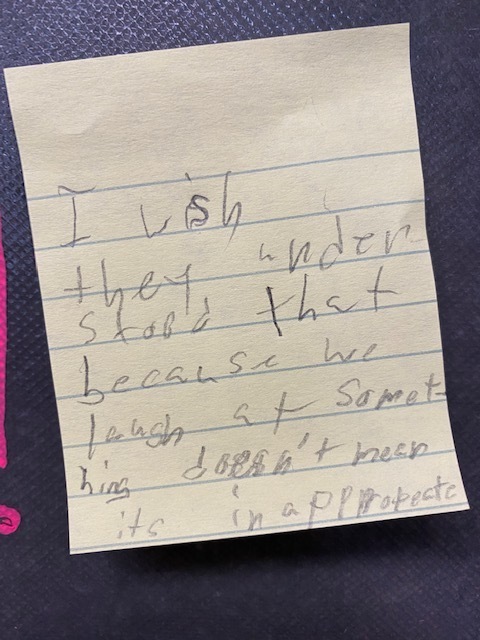 I wish
they under
stood that
because we
laugh at somet-
hing doesn't mean
its inappropeate